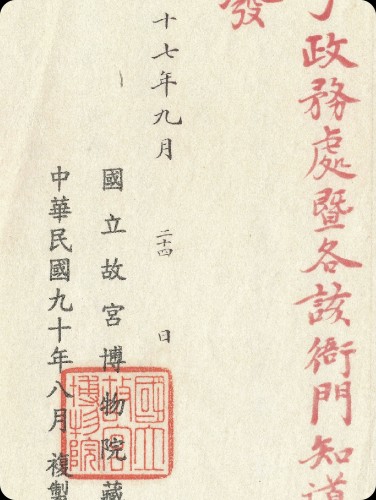 政務處暨各該衙門知道
發
十七年九月 二十四 日
國立故宮博物院藏
中華民國九十年八月 複製
國立故宮博物院